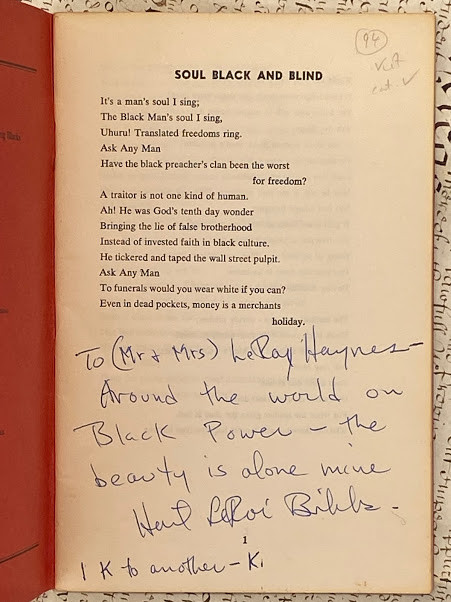 94
SOUL BLACK AND BLIND
It's a man's soul I sing;
The Black Man's soul I sing,
Uhuru! Translated freedoms ring.
Ask Any Man
Have the black preacher's clan been the worst
for freedom?
A traitor is not one kind of human.
Ah! He was God's tenth day wonder
Bringing the lie of false brotherhood
Instead of invested faith in black culture.
He tickered and taped the wall street pulpit.
Ask Any Man
To funerals would you wear white if you can?
Even in dead pockets, money is a merchants
holiday.
To (Mr & Mrs) LeRoy Haynes—
Around the world on
Black Power — the
beauty is alone mine
Hart LeRoi Bibbs.
1
1 K to another — K.